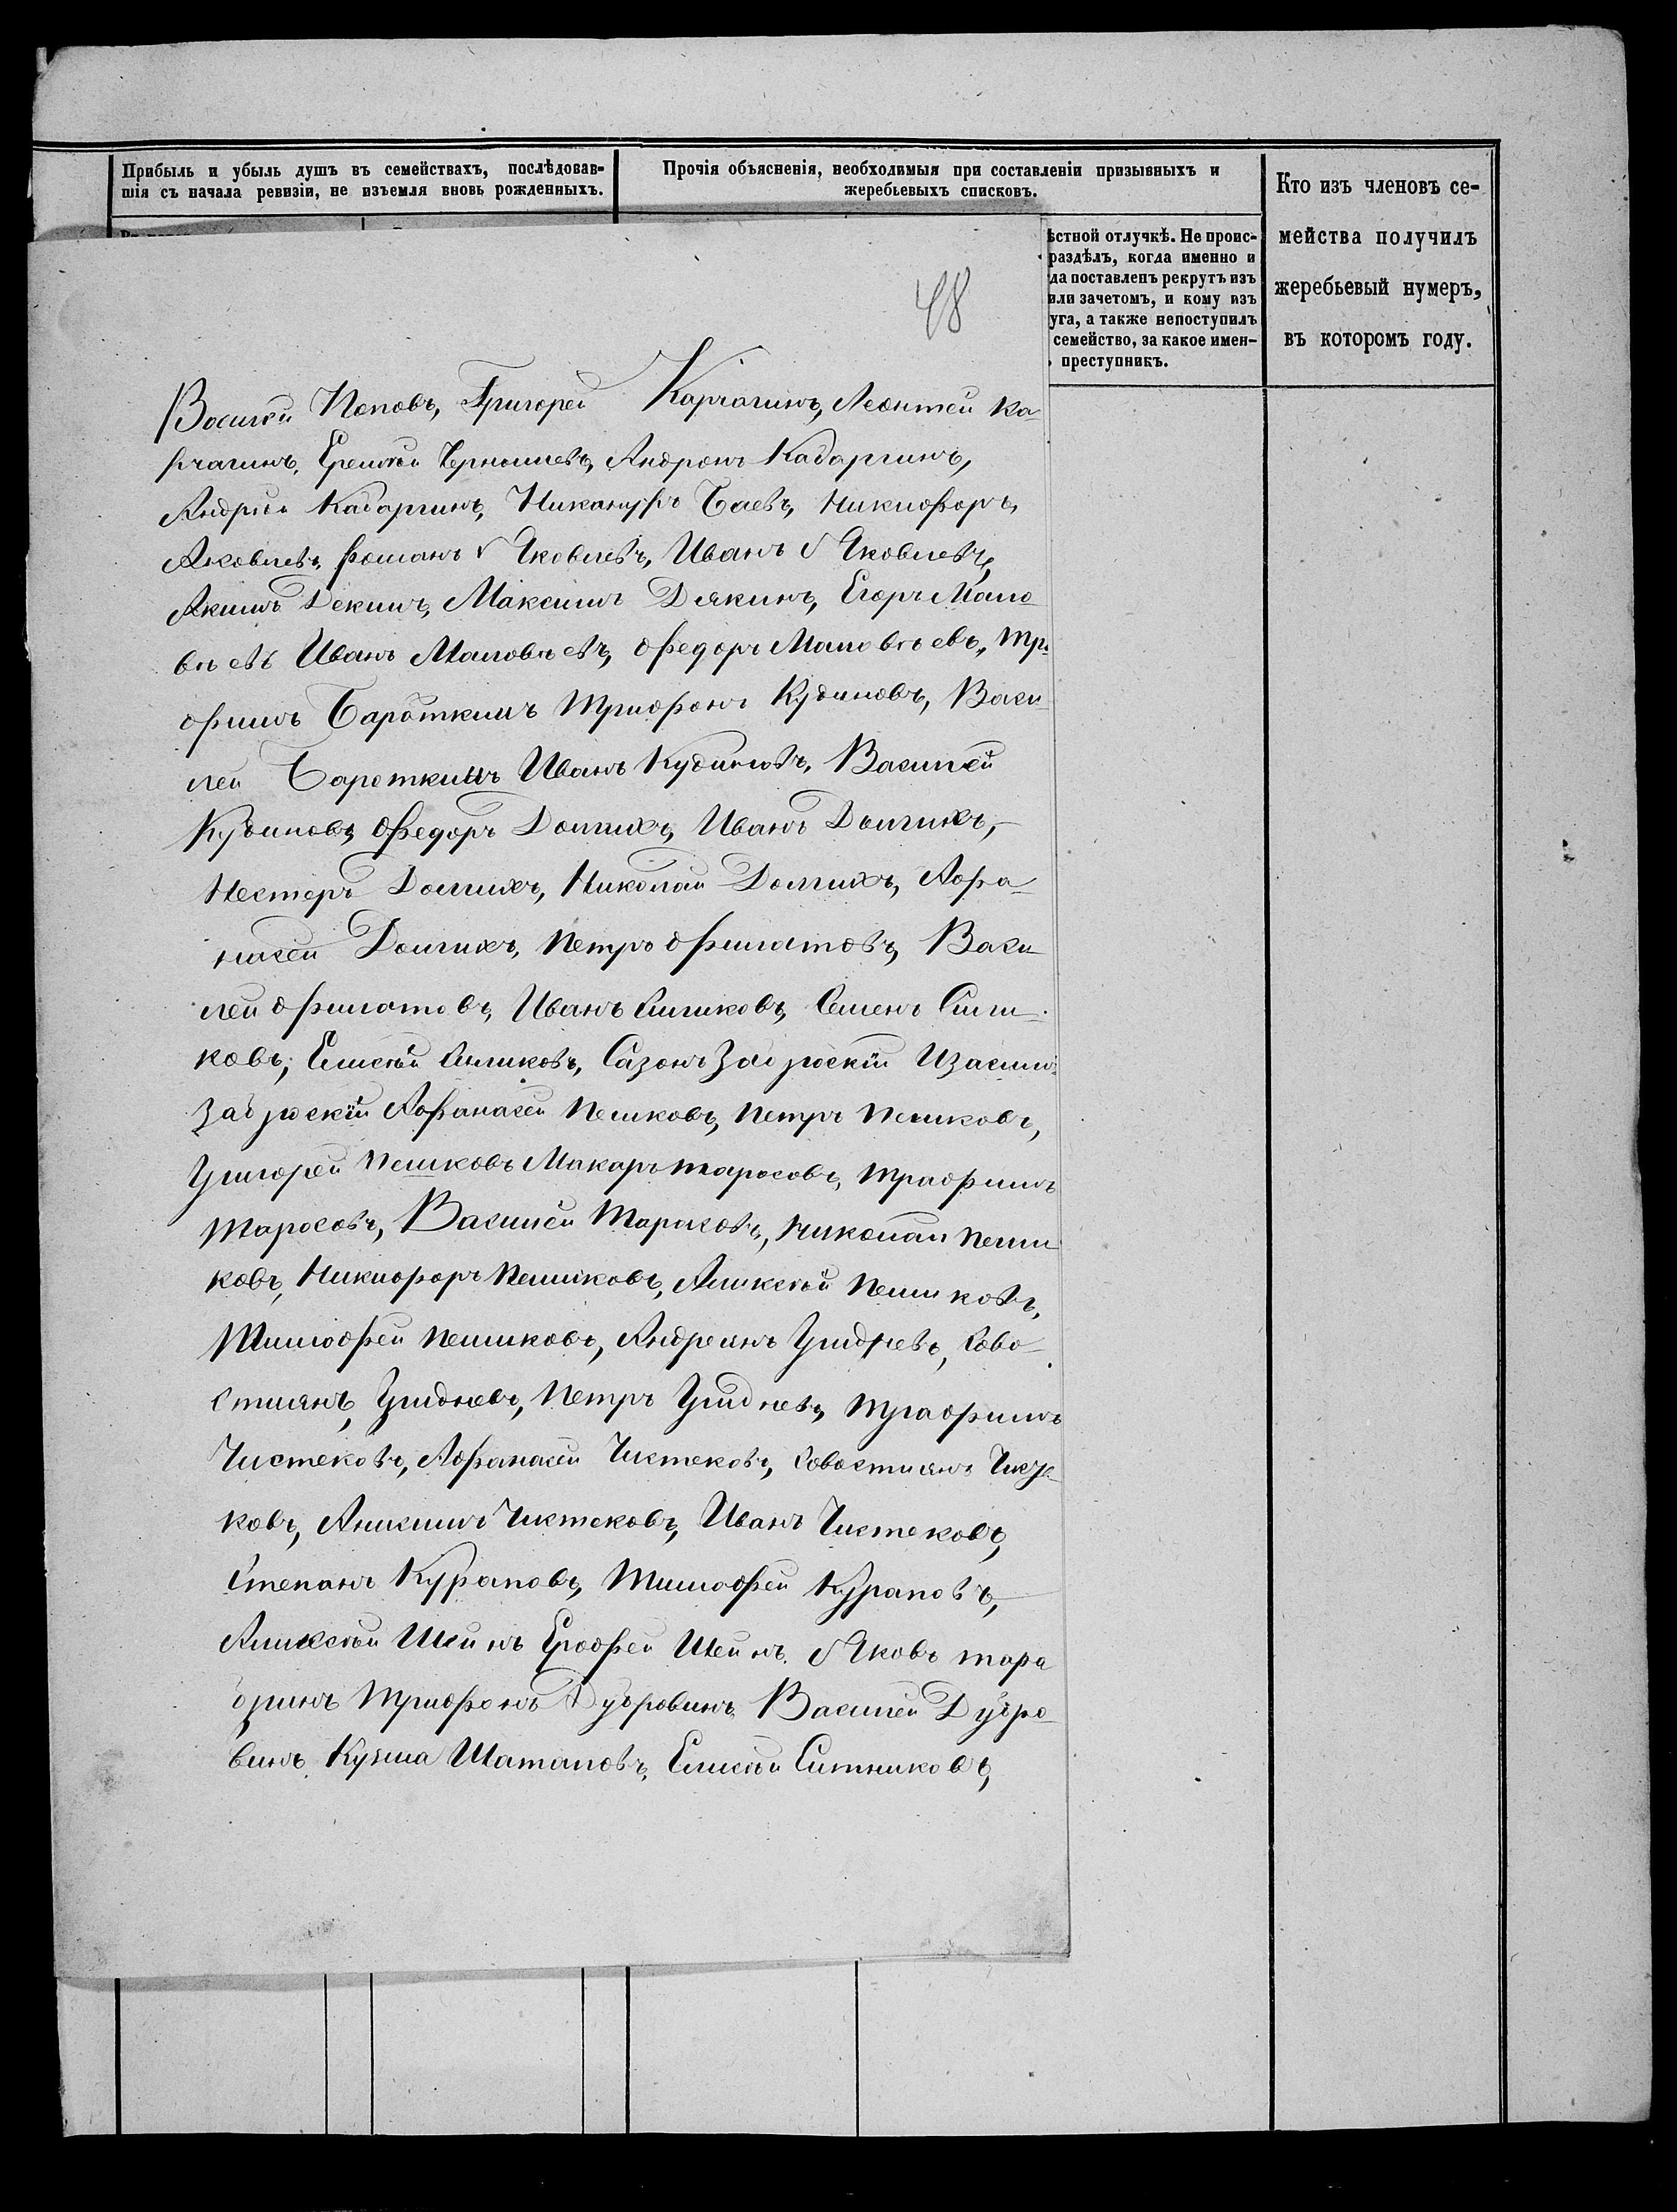 Прибыль и убыль душъ въ семействахъ, послѣдовав-
шія съ начала ревизіи, не изъемля вновь рожденныхъ.
Прочія объясненія, необходимыя при составленіи призывныхъ и
жеребьевыхъ списковъ.
Кто изъ членовъ се-
мейства получилъ
жеребьевый нумеръ,
въ которомъ году.
ѣстной отлучкѣ. Не проис-
раздѣлъ, когда именно и
да поставленъ рекрутъ изъ
или зачетомъ, и кому изъ
уга, а также непоступилъ
семейство, за какое имен-
преступникъ.
48
Василей Поповъ, Григорей Карчагинъ, Леонтей Ка-
рчагинъ, Еремѣй Чернышевъ, Андронъ Кадаргинъ,
Андрей Кадаргинъ, Никануръ Баевъ, Никифоръ,
Яковлевъ, Романъ Яковлевъ, Иванъ Яковлевъ,
Акимъ Декинъ, Максимъ Дякинъ, Егоръ Мало-
влевъ Иванъ Маловлевъ, Федоръ Маловлевъ, Тро-
фимъ Бароткинъ Трифонъ Кудиновъ, Васи-
лей Бареткинъ Иванъ Кудиновъ, Василей
Кудиновъ, Федоръ Долгихъ, Иванъ Долгихъ,
Нестеръ Долгихъ, Николай Долгихъ, Афо-
насей Долгихъ, Петръ Филатовъ, Васи-
лей Филатовъ, Иванъ Синиковъ, Семенъ Сини-
ковъ, Елисѣй Синиковъ, Сазонъ
Афанасей Пешковъ, Петръ Пешковъ,
Григорей Пешковъ Макаръ Таросовъ, Трафимъ
Таросовъ, Василей Таросовъ, Николай Пеши
ковъ, Никифоръ Пешиковъ, Аликсѣй Пешиковъ,
Тимофей Пешиковъ, Андреянъ Гридневъ, Саво-
стиянъ, Гридневъ, Петръ Гридневъ, Трафимъ
Чистековъ, Афанасей Чистековъ, Савостиянъ Чисте-
ковъ, Анисимъ Чистековъ, Иванъ Чистековъ,
Степанъ Кураповъ, Тимофей Кураповъ,
Аликсѣй Шеинъ Ерофей Шеинъ. Яковъ Тара
бринъ Трифонъ Дубровинъ, Василей Дубро-
винъ, Кузма Шаталовъ, Елисѣй Ситниковъ,